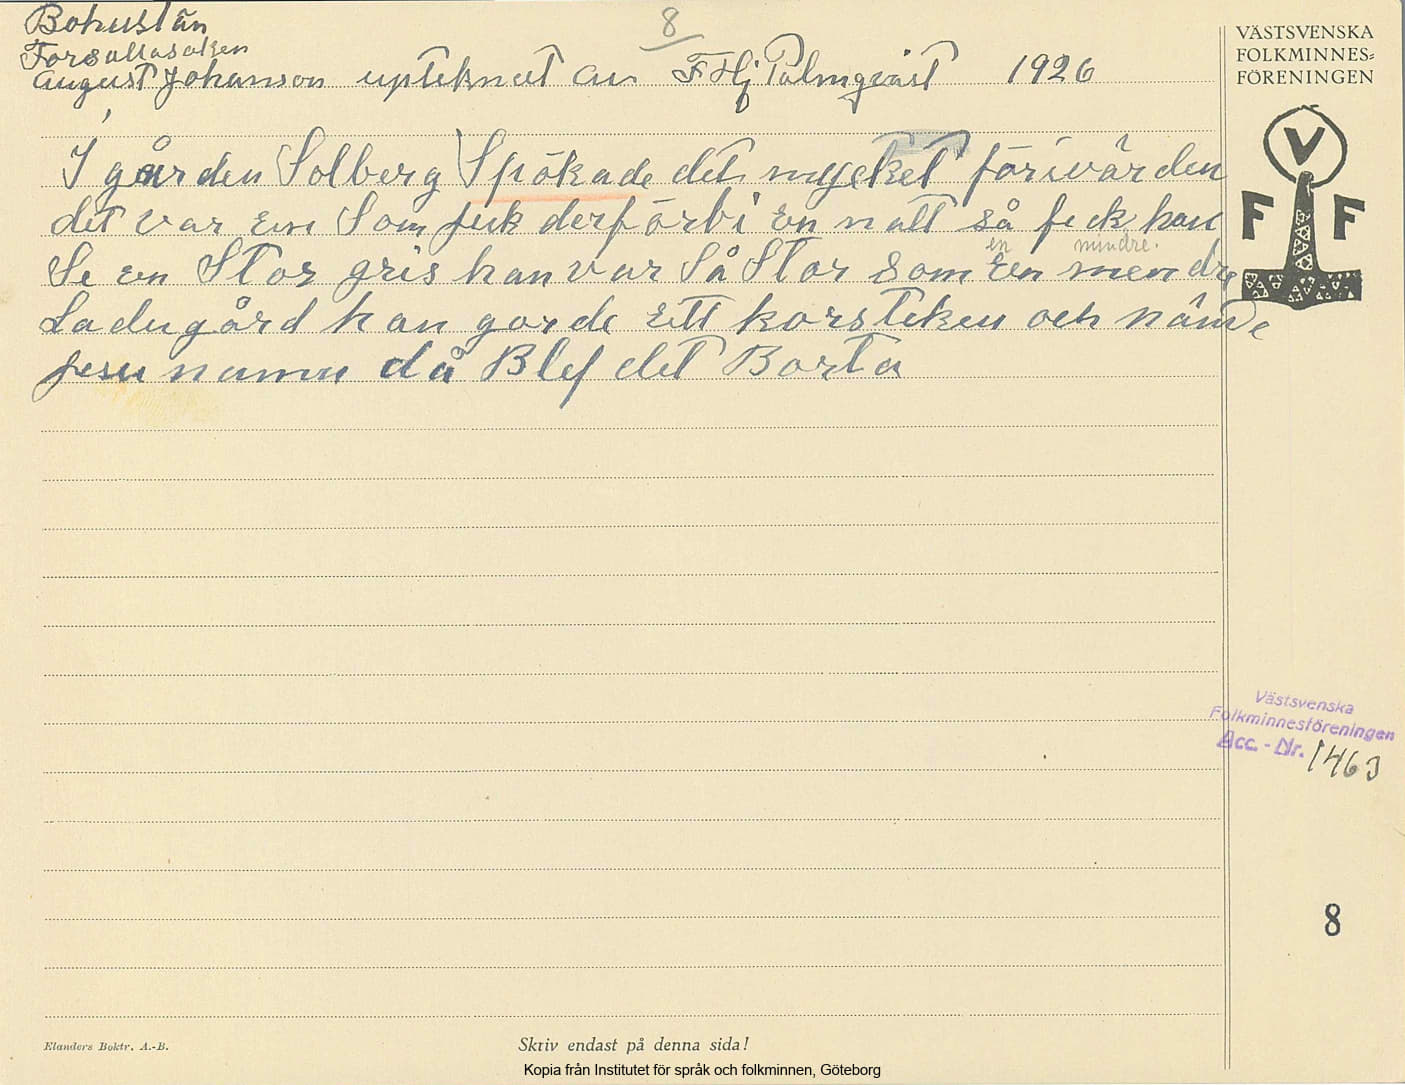 Bohuslän
8
Forsallasoken
August Johanson upteknat av F Hj Palmqvist 1926
I gården Solberg Spökade det mycket förivärden
det var En Som fick derförbi En natt så fick han
en mindre.
Se en Stor gris han var Så Stor som En mendre
Ladugård han gorde Ett korsteken och nämde
jesu namn då Blef det Borta
VÄSTSVENSKA
FOLKMINNES=
FÖRENINGEN
V
F F
Västsvenska
Folkminnesföreningen
Acc. - Nr. 1463
8
Elanders Boktr. A.-B.
Skriv endast på denna sida!
Kopia från Institutet för språk och folkminnen, Göteborg